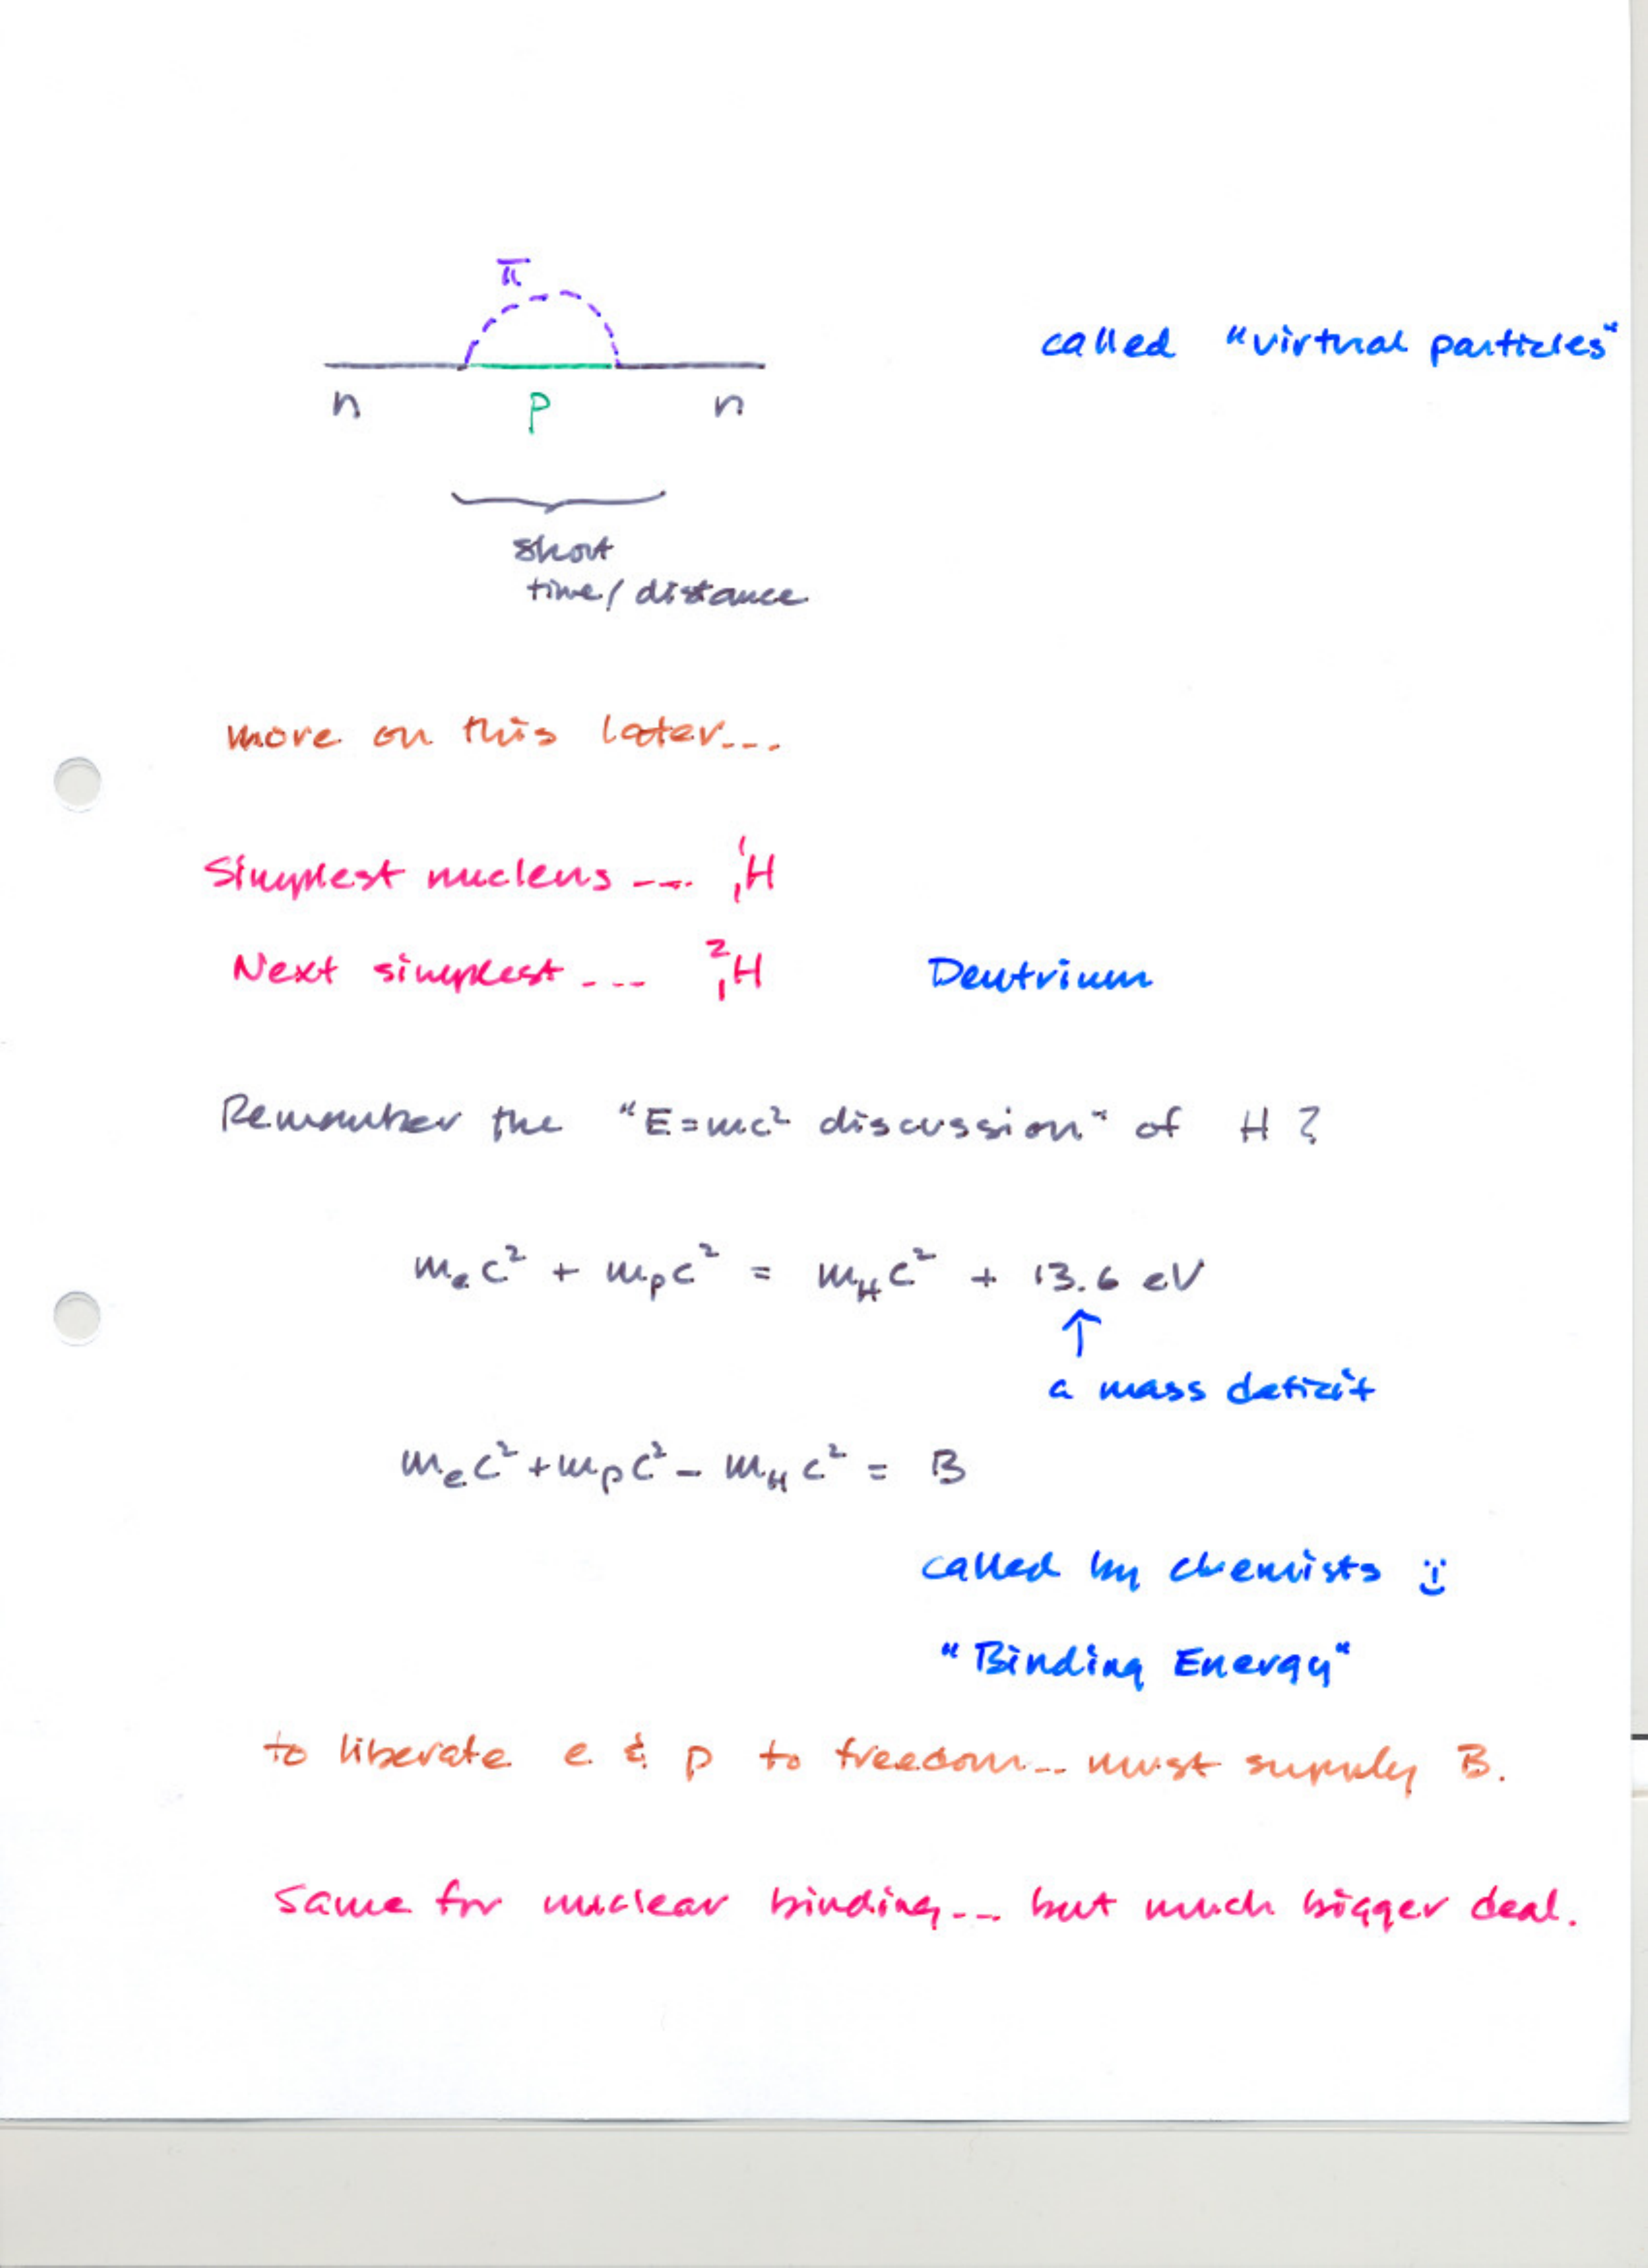 π
called "virtual particles"
n p n
short
time/distance
more on this later...
Simplest nucleus .... ¹₁H
Next simplest .... ²₁H Deutrium
Remember the "E=mc² discussion" of H ?
mₑc² + mₚc² = m_H c² + 13.6 eV
↑
a mass deficit
mₑc² + mₚc² − m_H c² = B
called by chemists :)
"Binding Energy"
to liberate e & p to freedom... must supply B.
Same for nuclear binding... but much bigger deal.